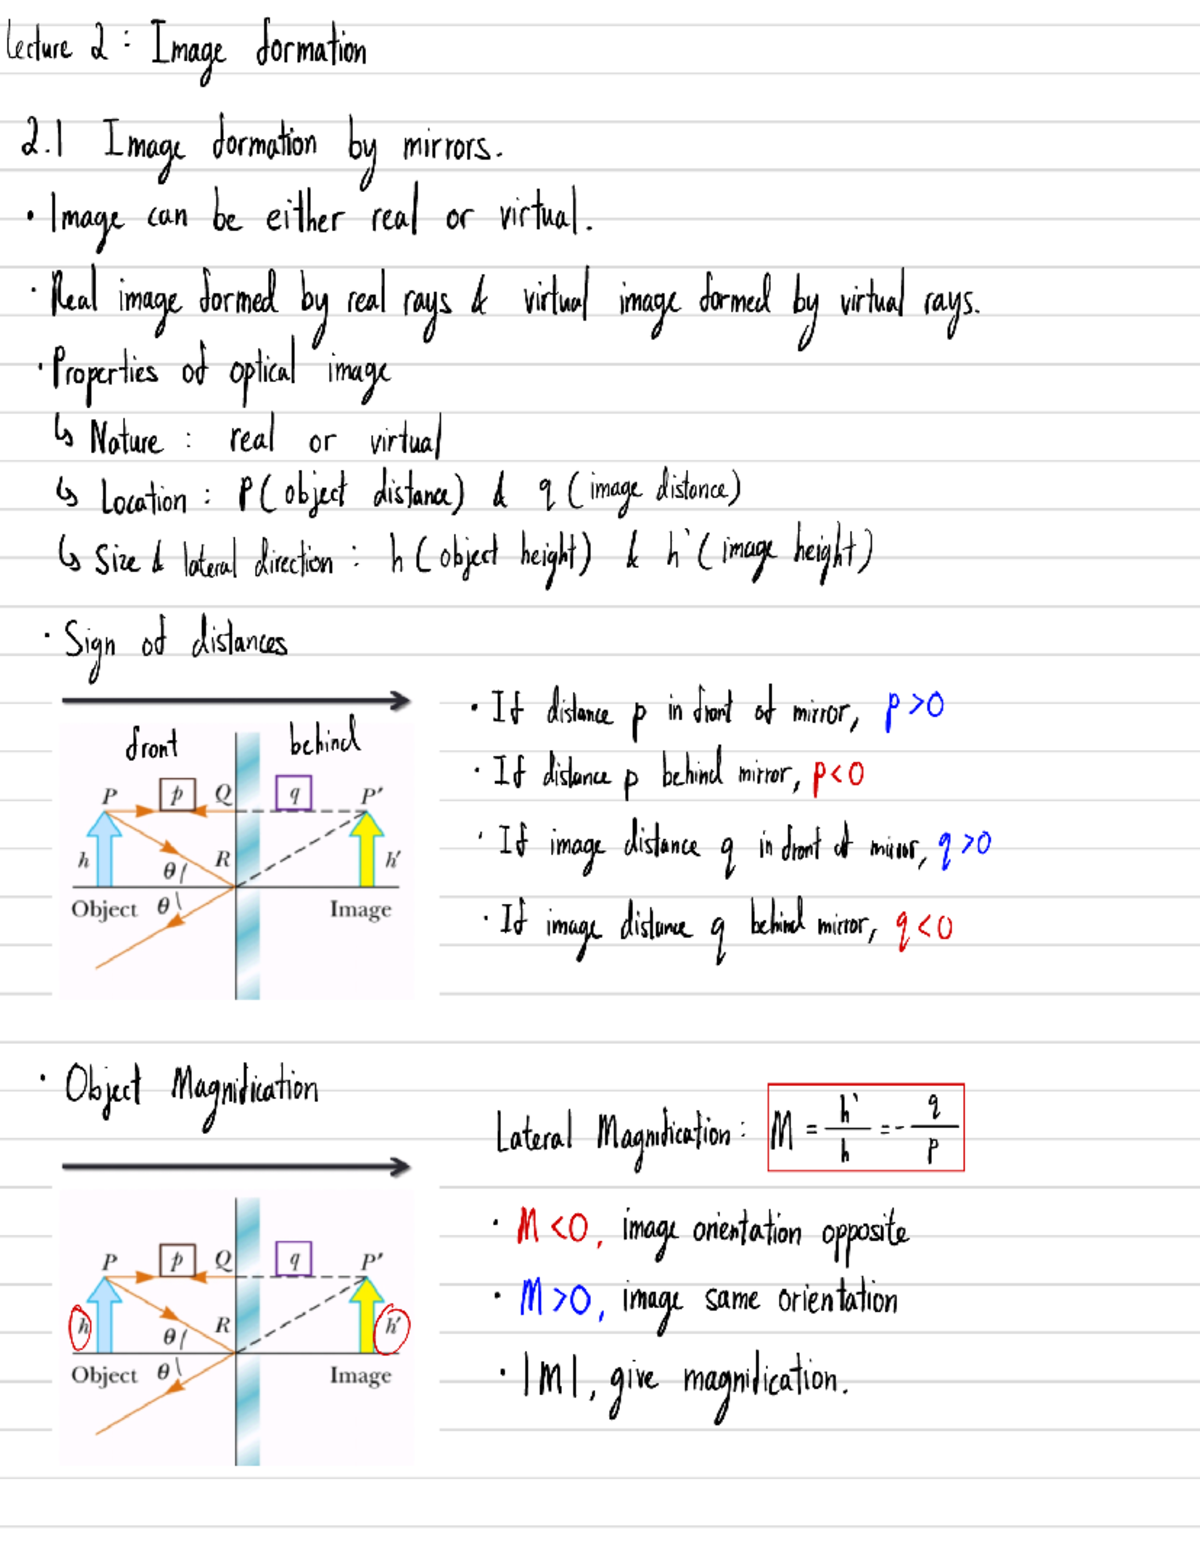 Lecture 2 : Image formation
2.1 Image formation by mirrors.
· Image can be either real or virtual.
· Real image formed by real rays & virtual image formed by virtual rays.
· Properties of optical image
↳ Nature : real or virtual
↳ Location : P (object distance) & q (image distance)
↳ Size & lateral direction : h (object height) & h' (image height)
· Sign of distances
front behind
P p Q q P'
h θ R h'
Object θ Image
· If distance p in front of mirror, p>0
· If distance p behind mirror, p<0
· If image distance q in front of mirror, q>0
· If image distance q behind mirror, q<0
· Object Magnification
Lateral Magnification : M = h'/h = - q/p
P p Q q P'
h θ R h'
Object θ Image
· M<0, image orientation opposite
· M>0, image same orientation
· |M|, give magnification.